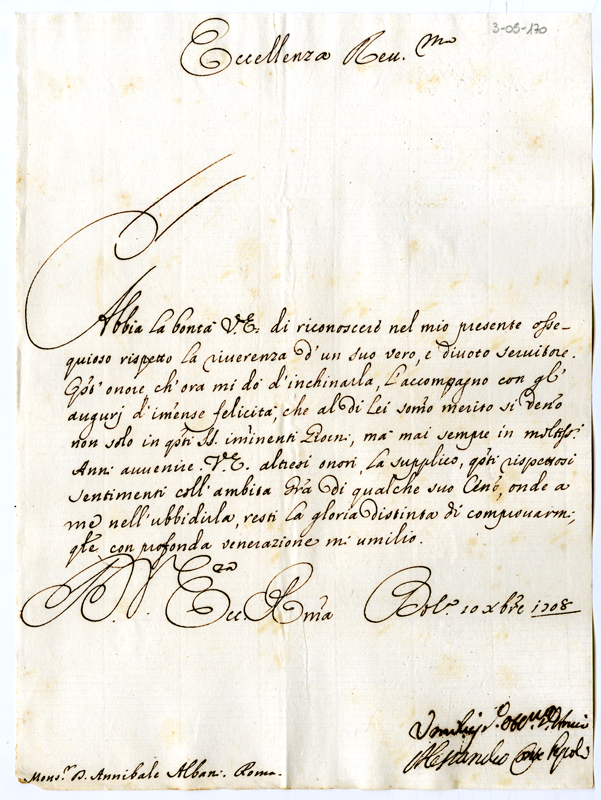 3-05-170
Eccellenza Reu.mo
Abbia la bontà V.E. di riconoscere nel mio presente osse-
quioso rispetto la riuerenza d'un suo vero, e diuoto seruitore.
Qst' onore ch'ora mi dò d'inchinarla, l'accompagno con gl'
augurj d'imense felicità, che al di Lei somo merito si deno
non solo in qsti SS. iminenti Giorni, ma mai sempre in moltiss:
Anni auuenire. V.E. altresi onori, la supplico, qsti rispettosi
sentimenti coll'ambita Gra di qualche suo Cenno, onde a
me nell'ubbidirla, resti la gloria distinta di comprouarmi,
qle con profonda venerazione mi umilio.
D. V. Ecc.za Rma Bol.a 10 xbre 1708
Umiliss.o Obb.mo
Alessandro
Mons.r D. Annibale Albani. Roma.